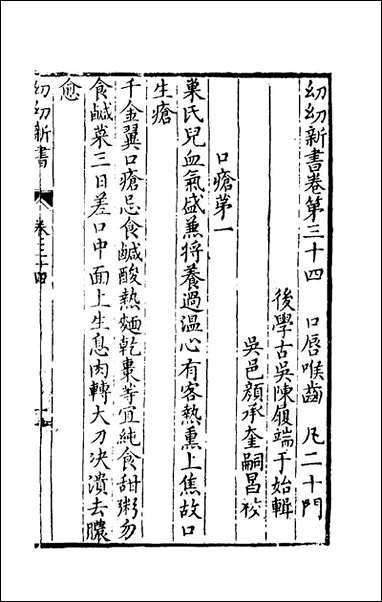 幼幼新書卷第三十四 口唇喉齒 凡二十門
後學古吳陳履端于始輯
吳邑顏承奎嗣昌校
口瘡第一
巢氏兒血氣盛兼將養過温心有客熱熏上焦故口
生瘡
千金翼口瘡忌食鹹酸熱麵乾棗等宜純食甜粥勿
食鹹菜三日差口中面上生息肉轉大刀决潰去膿
愈
幼幼新書 卷三十四 一